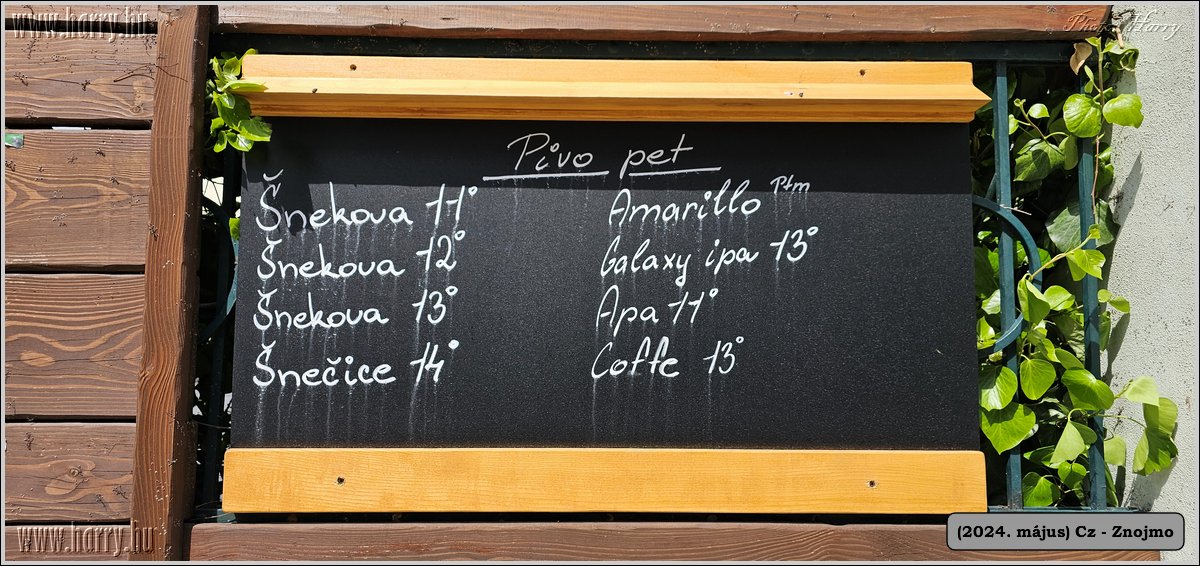 www.harry.hu
Photo: Harry
Pivo pet
Šnekova 11°
Šnekova 12°
Šnekova 13°
Šnečice 14°
Amarillo
Galaxy ipa 13°
Apa 11°
Coffe 13°
www.harry.hu
(2024. május) Cz - Znojmo